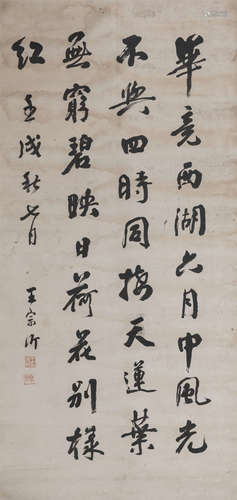 畢竟西湖六月中風光
不與四時同接天蓮葉
無窮碧映日荷花別樣
紅 壬戌秋七月
王宗